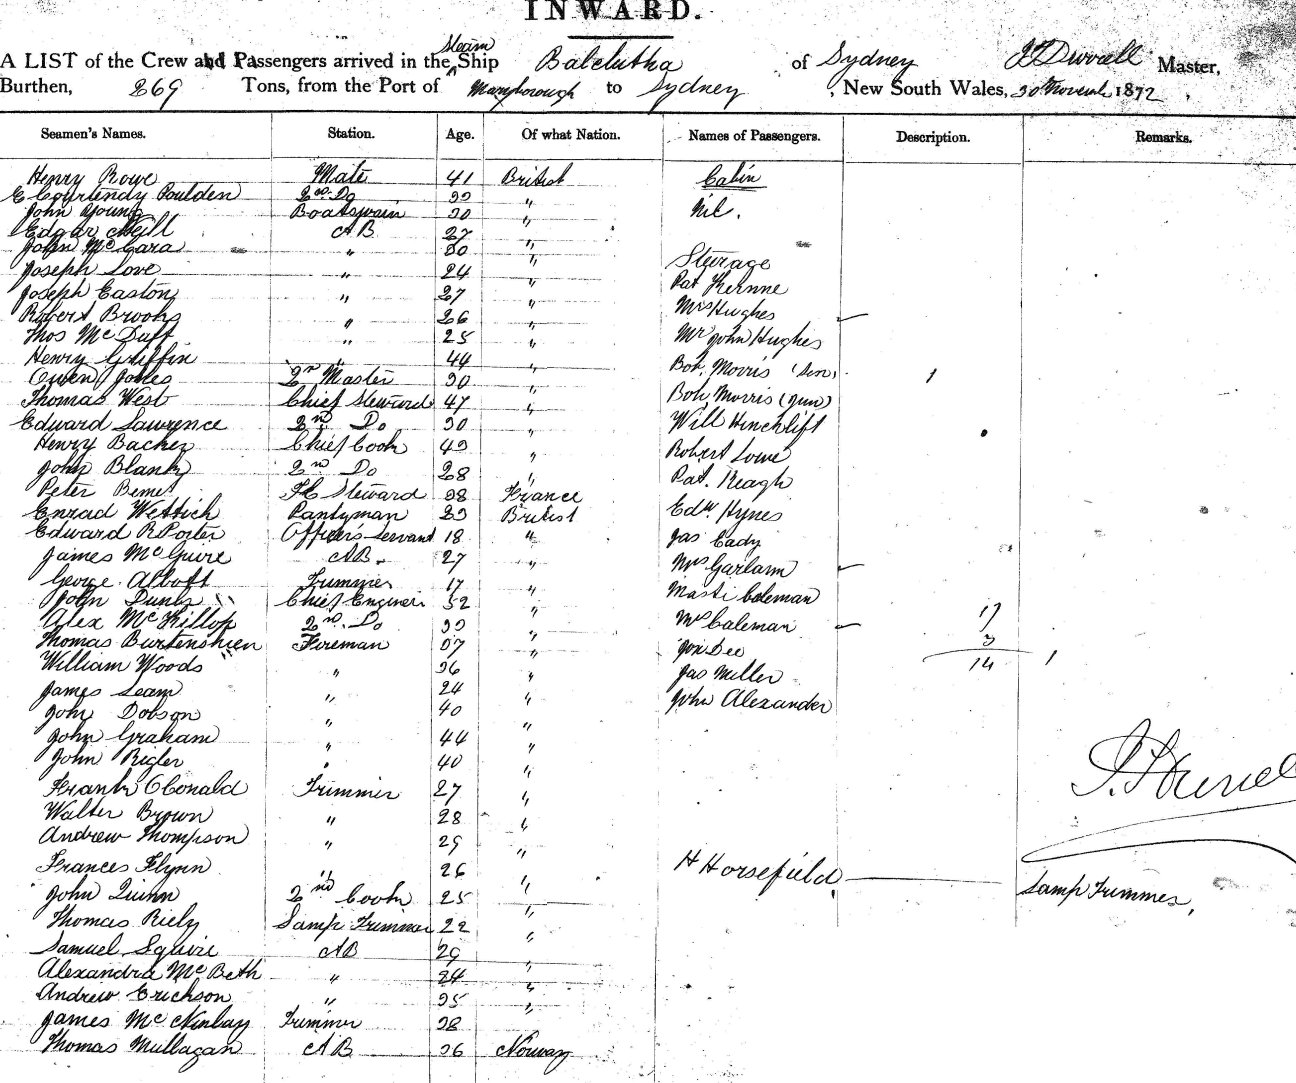 INWARD.
A LIST of the Crew and Passengers arrived in the Steam Ship Balclutha of Sydney Master,
Burthen, 269 Tons, from the Port of Maryborough to Sydney, New South Wales, 30 November 1872,
Seamen's Names. Station. Age. Of what Nation. Names of Passengers. Description. Remarks.
Henry Rowe Mate 41 British Cabin
E Courtenay Poulden 2nd Do 33 " Nil.
John Young Boatswain 30 "
Edgar Neill AB 27 "
John McCara " 30 " Steerage
Joseph Love " 24 " Pat
Joseph Easton " 27 " Mrs Hughes
Robert Brooks " 26 " Mr John Hughes
Thos McDuff " 25 " Bob. Morris (Sen)
Henry Griffin " 44 " Bob, Morris (Jun)
Owen Jones 2nd Master 30 " Will Hinchlift
Thomas West Chief Steward 47 " Robert Lowe
Edward Lawrence 2nd Do 30 " Pat. Reagh
Henry Backer Chief Cook 43 " Edw. Hynes
John Blank 2nd Do 28 " Jas Cady
Peter Steward 38 France Mrs
Wettich Pantyman 33 British Mast. Coleman
Edward R Porter Officer's Servant 18 " Mrs Coleman
James McGuire AB. 27 " Jon Dee
George Abbott Trimmer 17 " Jas Miller
John Chief Engineer 52 " John Alexander
Alex McKillop 2nd Do 33 "
Thomas Fireman 37 "
William Woods " 36 "
James " 24 "
John Dobson " 40 "
John Graham " 44 "
John Rigler " 40 "
Frank OConald Trimmer 27 "
Walter Brown " 28 "
Andrew Thompson " 29 "
Frances Flynn " 26 " H Horsefield Lamp Trimmer,
John Quinn 2nd Cook 25 "
Thomas Riely Lamp Trimmer 22 "
Samuel Squire AB 29 "
Alexandra McBeth " 24 "
Andrew Erickson " 35 "
James McNinlay Trimmer 38
Thomas Mullagan AB 36 Norway
17
3
14